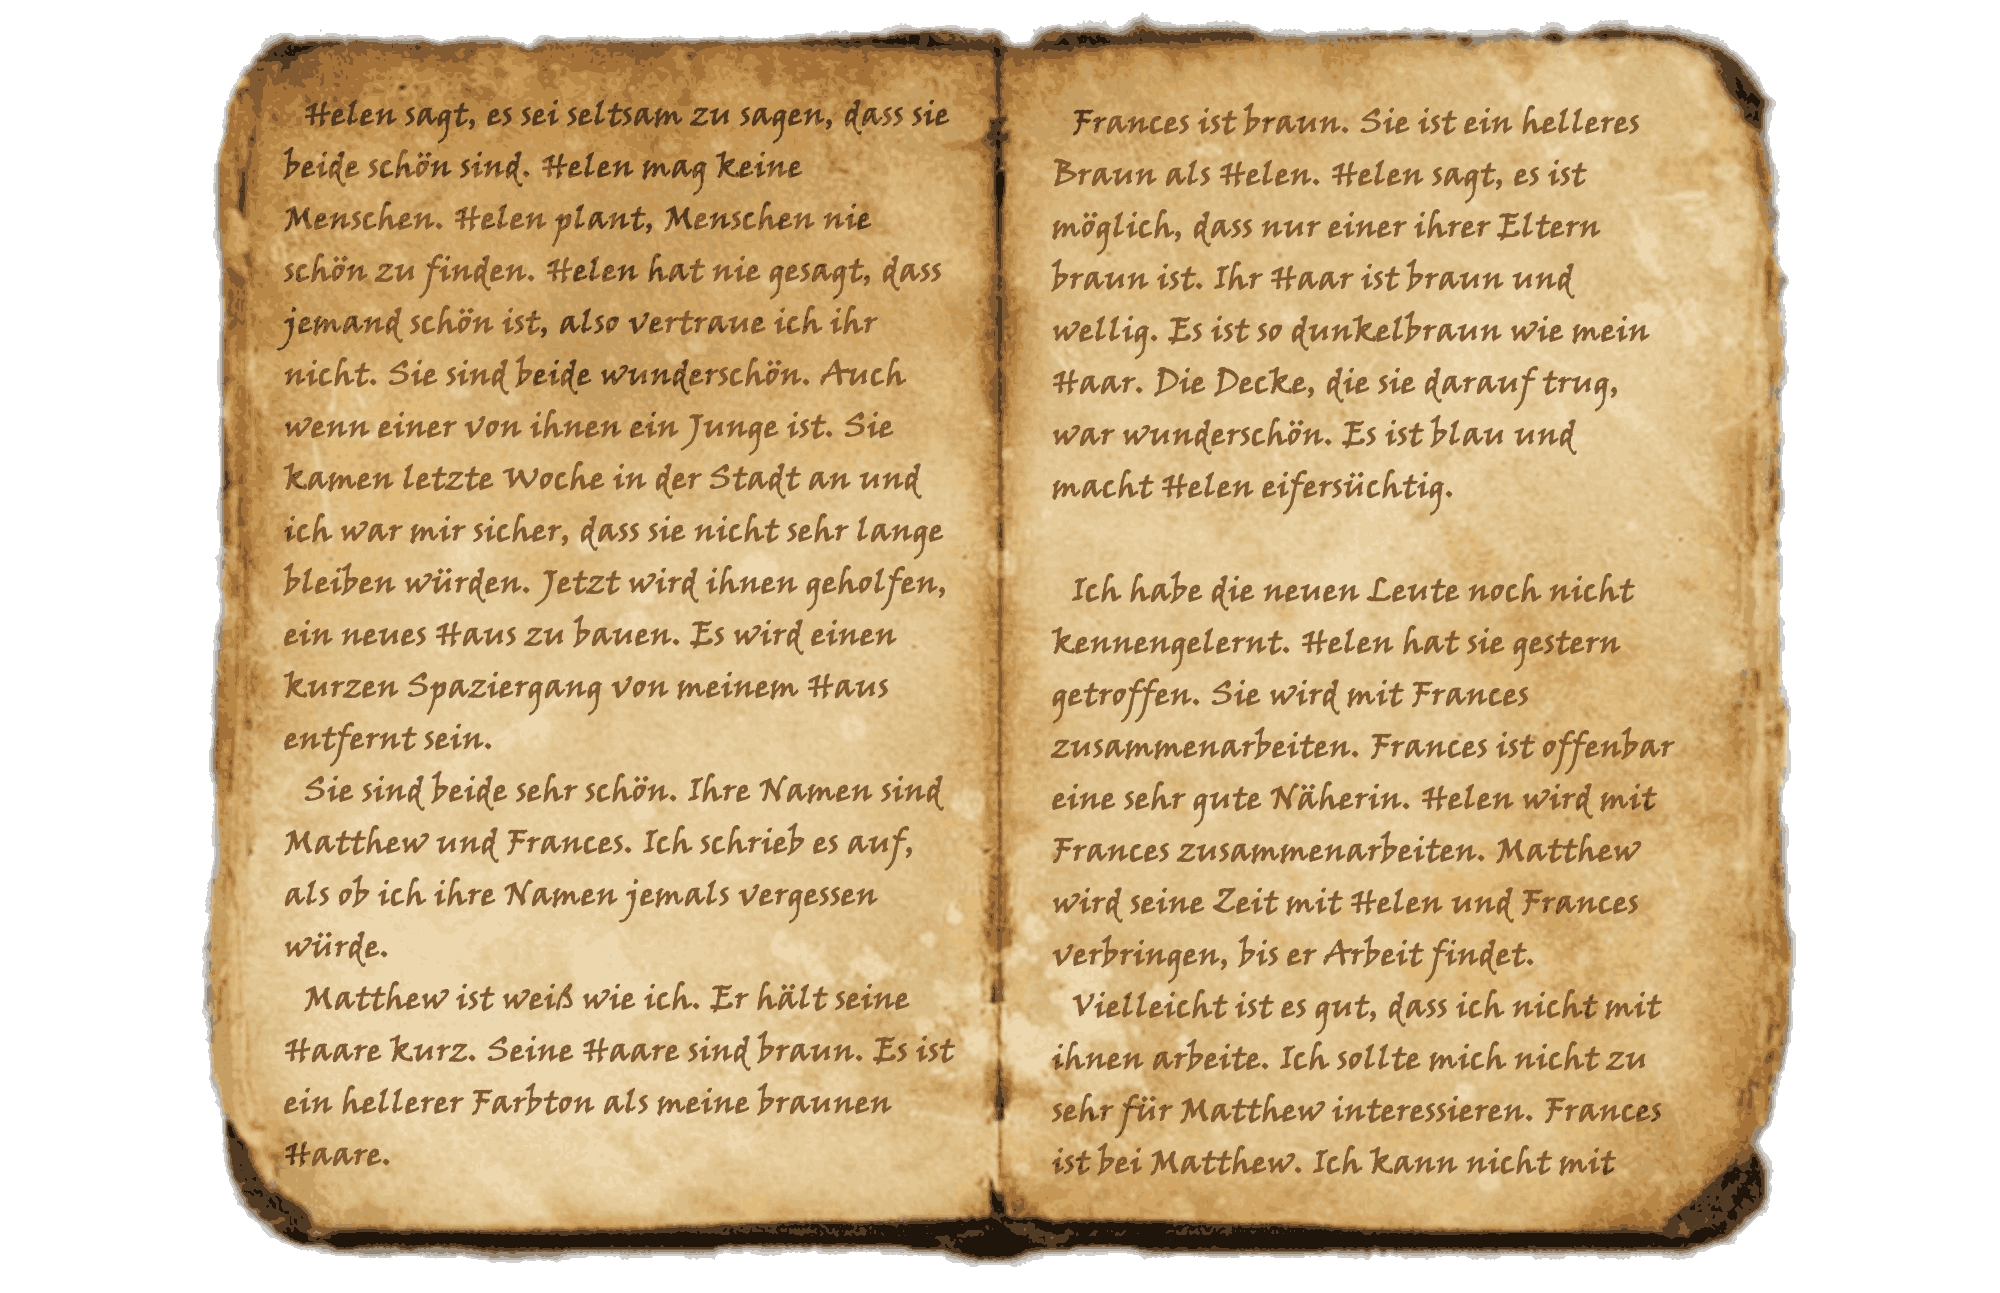 Helen sagt, es sei seltsam zu sagen, dass sie
beide schön sind. Helen mag keine
Menschen. Helen plant, Menschen nie
schön zu finden. Helen hat nie gesagt, dass
jemand schön ist, also vertraue ich ihr
nicht. Sie sind beide wunderschön. Auch
wenn einer von ihnen ein Junge ist. Sie
kamen letzte Woche in der Stadt an und
ich war mir sicher, dass sie nicht sehr lange
bleiben würden. Jetzt wird ihnen geholfen,
ein neues Haus zu bauen. Es wird einen
kurzen Spaziergang von meinem Haus
entfernt sein.
Sie sind beide sehr schön. Ihre Namen sind
Matthew und Frances. Ich schrieb es auf,
als ob ich ihre Namen jemals vergessen
würde.
Matthew ist weiß wie ich. Er hält seine
Haare kurz. Seine Haare sind braun. Es ist
ein hellerer Farbton als meine braunen
Haare.
Frances ist braun. Sie ist ein helleres
Braun als Helen. Helen sagt, es ist
möglich, dass nur einer ihrer Eltern
braun ist. Ihr Haar ist braun und
wellig. Es ist so dunkelbraun wie mein
Haar. Die Decke, die sie darauf trug,
war wunderschön. Es ist blau und
macht Helen eifersüchtig.
Ich habe die neuen Leute noch nicht
kennengelernt. Helen hat sie gestern
getroffen. Sie wird mit Frances
zusammenarbeiten. Frances ist offenbar
eine sehr gute Näherin. Helen wird mit
Frances zusammenarbeiten. Matthew
wird seine Zeit mit Helen und Frances
verbringen, bis er Arbeit findet.
Vielleicht ist es gut, dass ich nicht mit
ihnen arbeite. Ich sollte mich nicht zu
sehr für Matthew interessieren. Frances
ist bei Matthew. Ich kann nicht mit